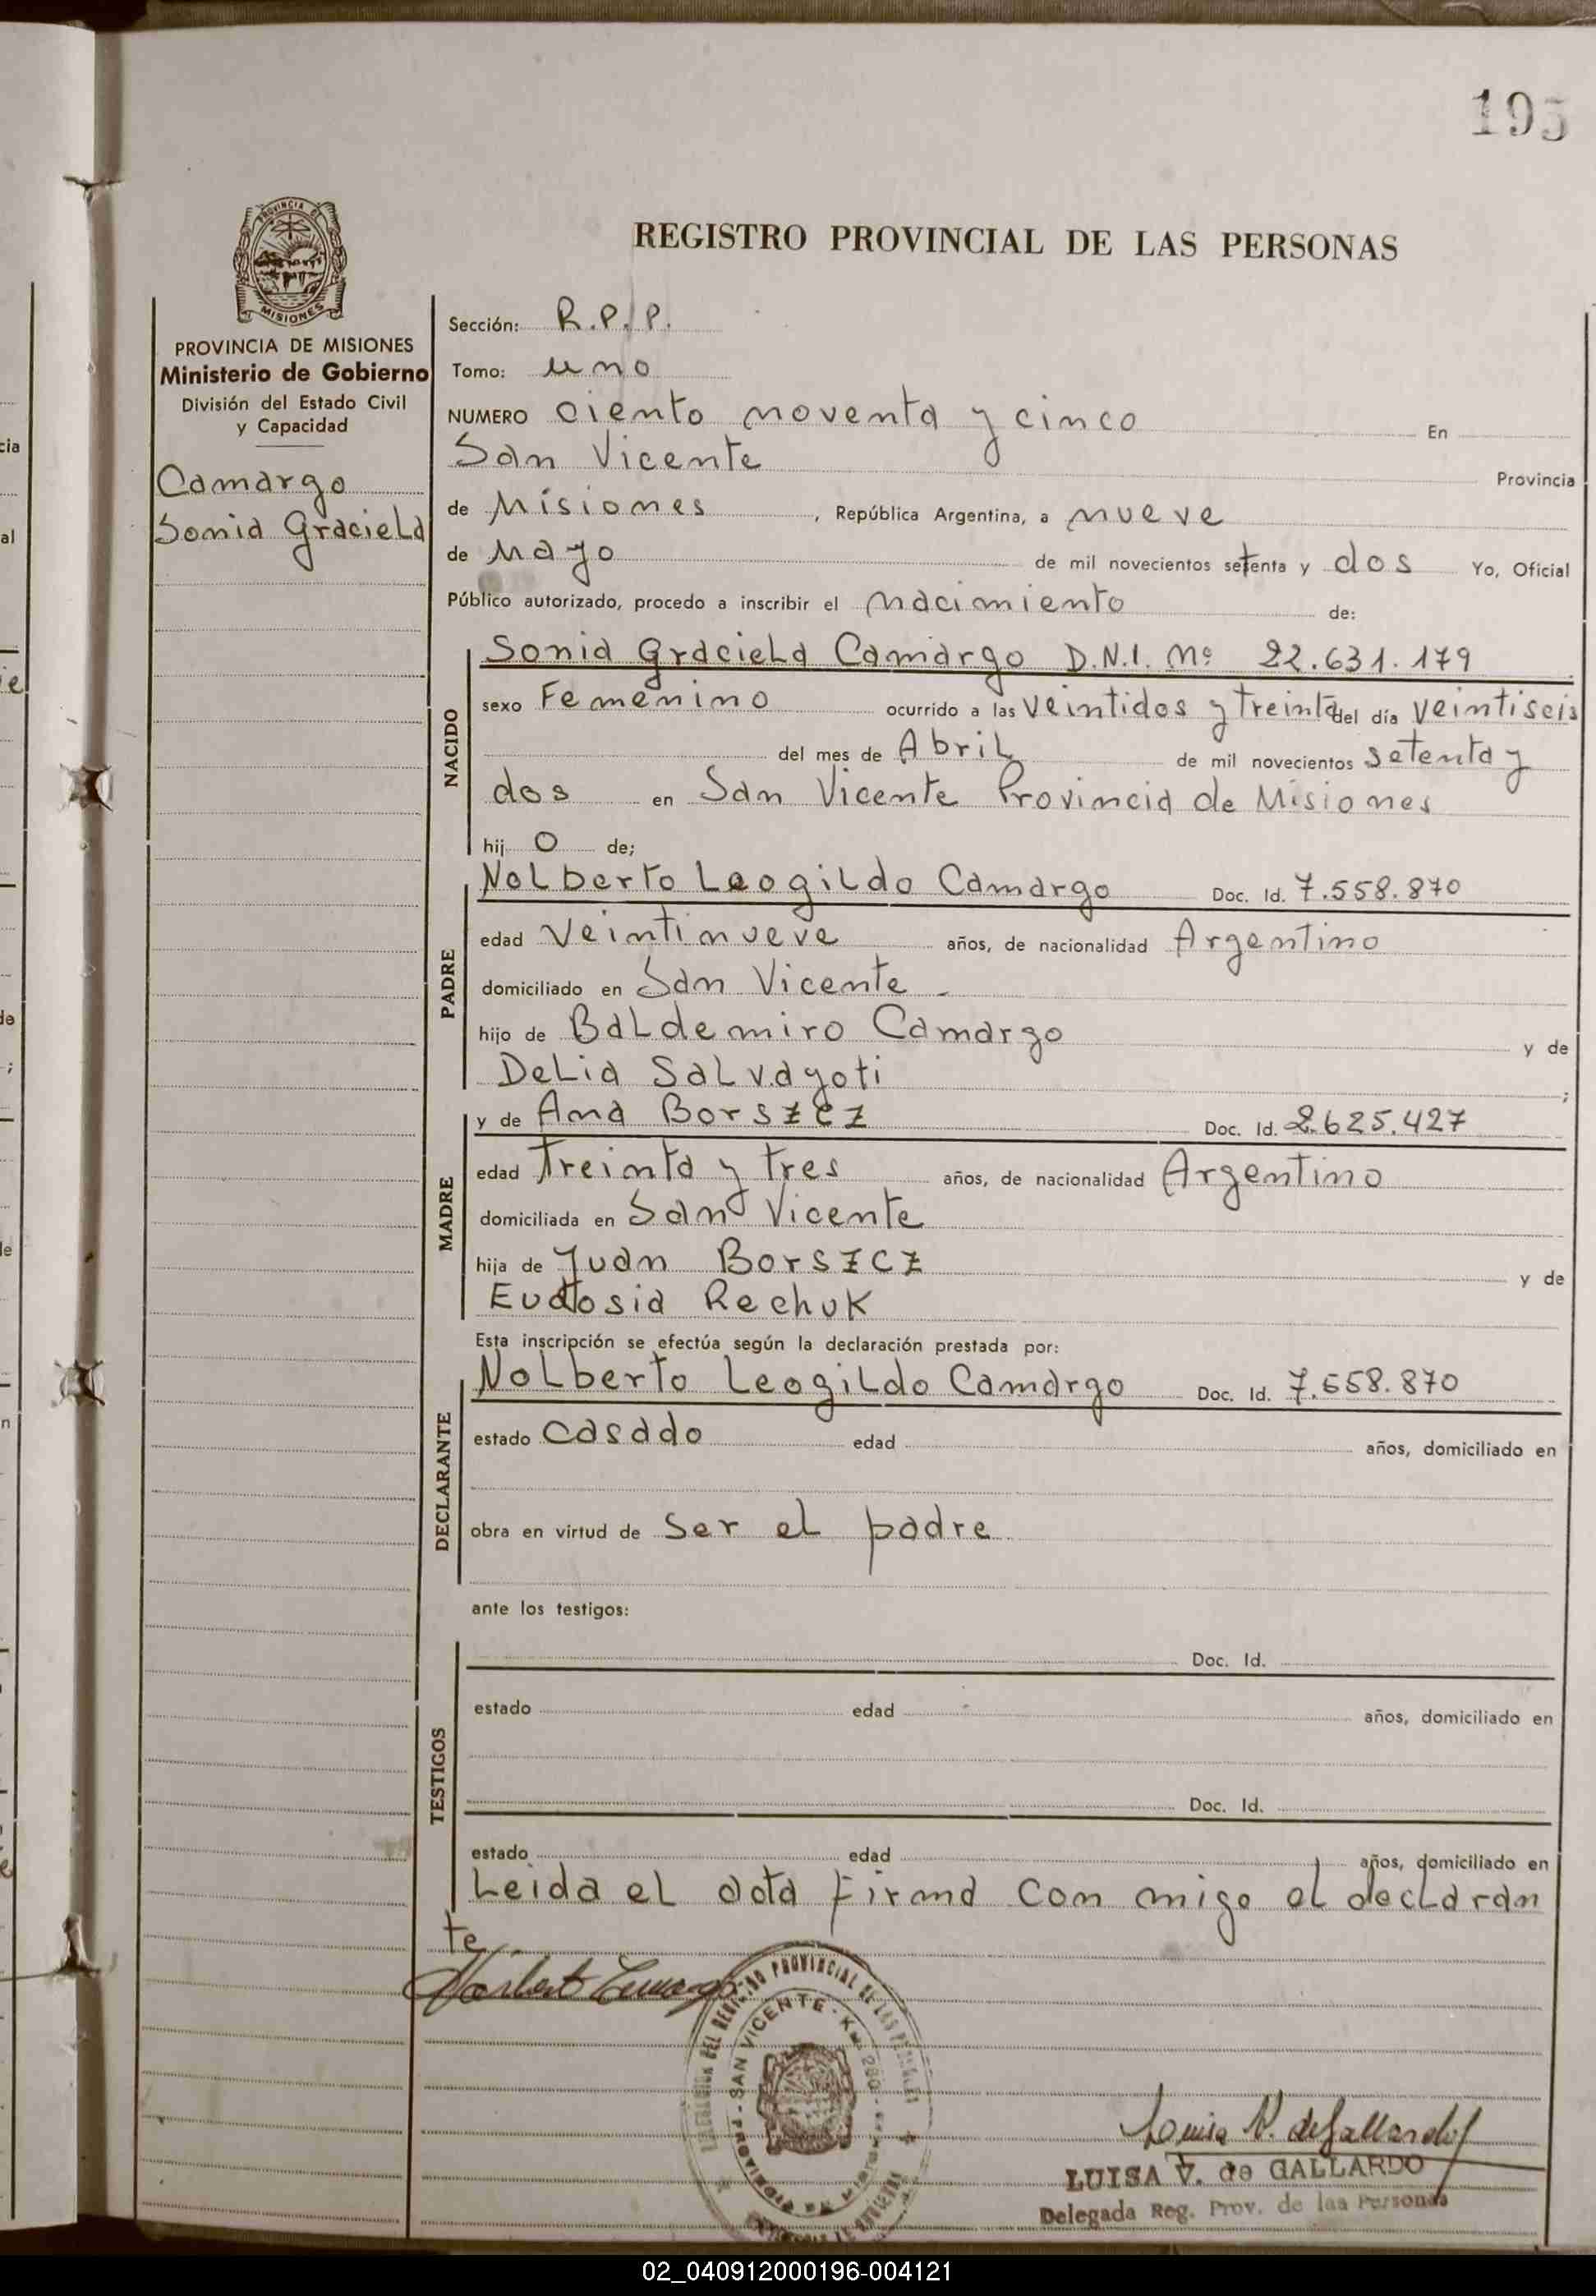 195
PROVINCIA DE MISIONES
Ministerio de Gobierno
División del Estado Civil
y Capacidad
Camargo
Sonia Graciela
REGISTRO PROVINCIAL DE LAS PERSONAS
Sección: R.P.P.
Tomo: uno
NUMERO ciento noventa y cinco En
San Vicente Provincia
de Misiones, República Argentina, a nueve
de Mayo de mil novecientos setenta y dos Yo, Oficial
Público autorizado, procedo a inscribir el nacimiento de:
NACIDO
Sonia Graciela Camargo D.N.I. Nº 22.631.179
sexo Femenino ocurrido a las veintidos y treinta del día veintiseis
del mes de Abril de mil novecientos setenta y
dos en San Vicente Provincia de Misiones
hij o de;
PADRE
Nolberto Leogildo Camargo Doc. Id. 7.558.870
edad veintinueve años, de nacionalidad Argentino
domiciliado en San Vicente
hijo de Baldemiro Camargo y de
Delia Salvagoti ;
MADRE
y de Ana Borszcz Doc. Id. 2.625.427
edad treinta y tres años, de nacionalidad Argentino
domiciliada en San Vicente
hija de Juan Borszcz y de
Eudosia Rechuk
Esta inscripción se efectúa según la declaración prestada por:
DECLARANTE
Nolberto Leogildo Camargo Doc. Id. 7.558.870
estado casado edad años, domiciliado en
obra en virtud de ser el padre
ante los testigos:
TESTIGOS
Doc. Id.
estado edad años, domiciliado en
Doc. Id.
estado edad años, domiciliado en
Leida el acta firma con migo el declaran
te
Norberto Camargo
PROVINCIAL DE LAS
SAN VICENTE - Km 260
Luisa V. de Gallardo
LUISA V. de GALLARDO
Delegada Reg. Prov. de las Personas
02_040912000196-004121